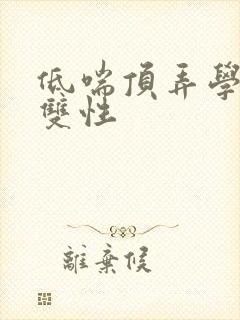 低喘頂弄學
雙性
離棄候